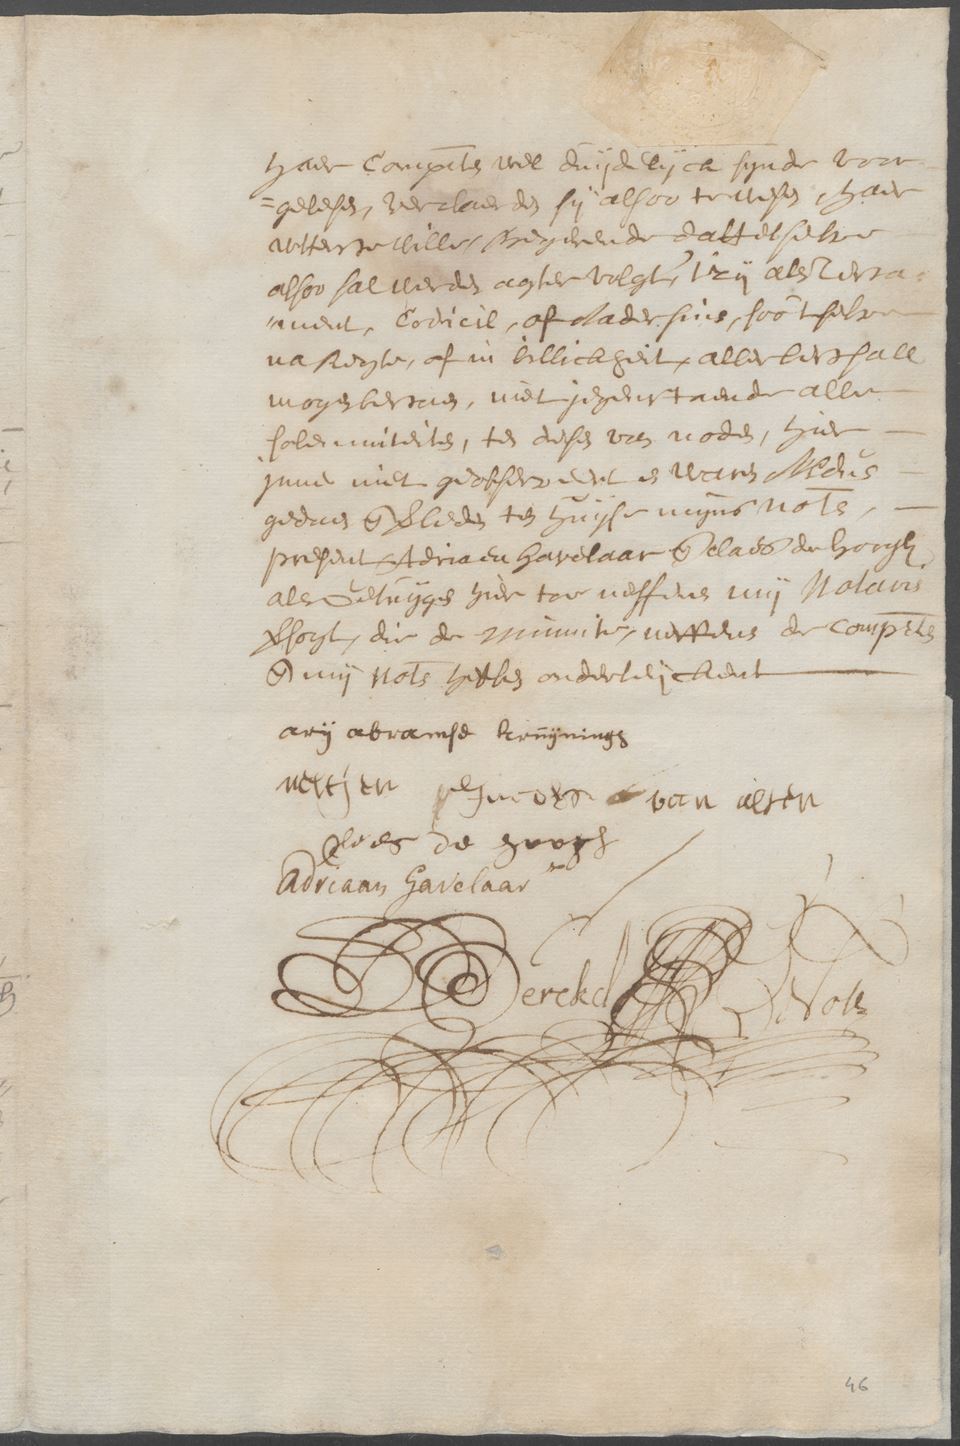 haer Compten wel duijdelijck sijnde voor-
=gelesen, verclaerden sij alsoo te wesen haer
uÿtterste wille, begeerende dat deselve
alsoo sal werden agtervolgt, 't zij als Testa-
ment, Codicil, of andersins, soo 't selve
na Regte, of in billickheit, alderbest sal
mogen bestaen, niet jegenstaende alle
solemniteiten, ten desen van noden, hier
inne niet geobserveert en waren Aldus
gedaen en verleden ten huijse mijns Nots,
present Adriaen havelaar en Claes de hoogh
als Getuijgen hier toe neffens mij Notaris
versogt, die de minute, neffens de Compten
en mij Nots hebben onderteijckent
arij abramse kruijninge
neeltjen van alsen
Claes de hoogh
Adriaan Havelaar
Nots
46